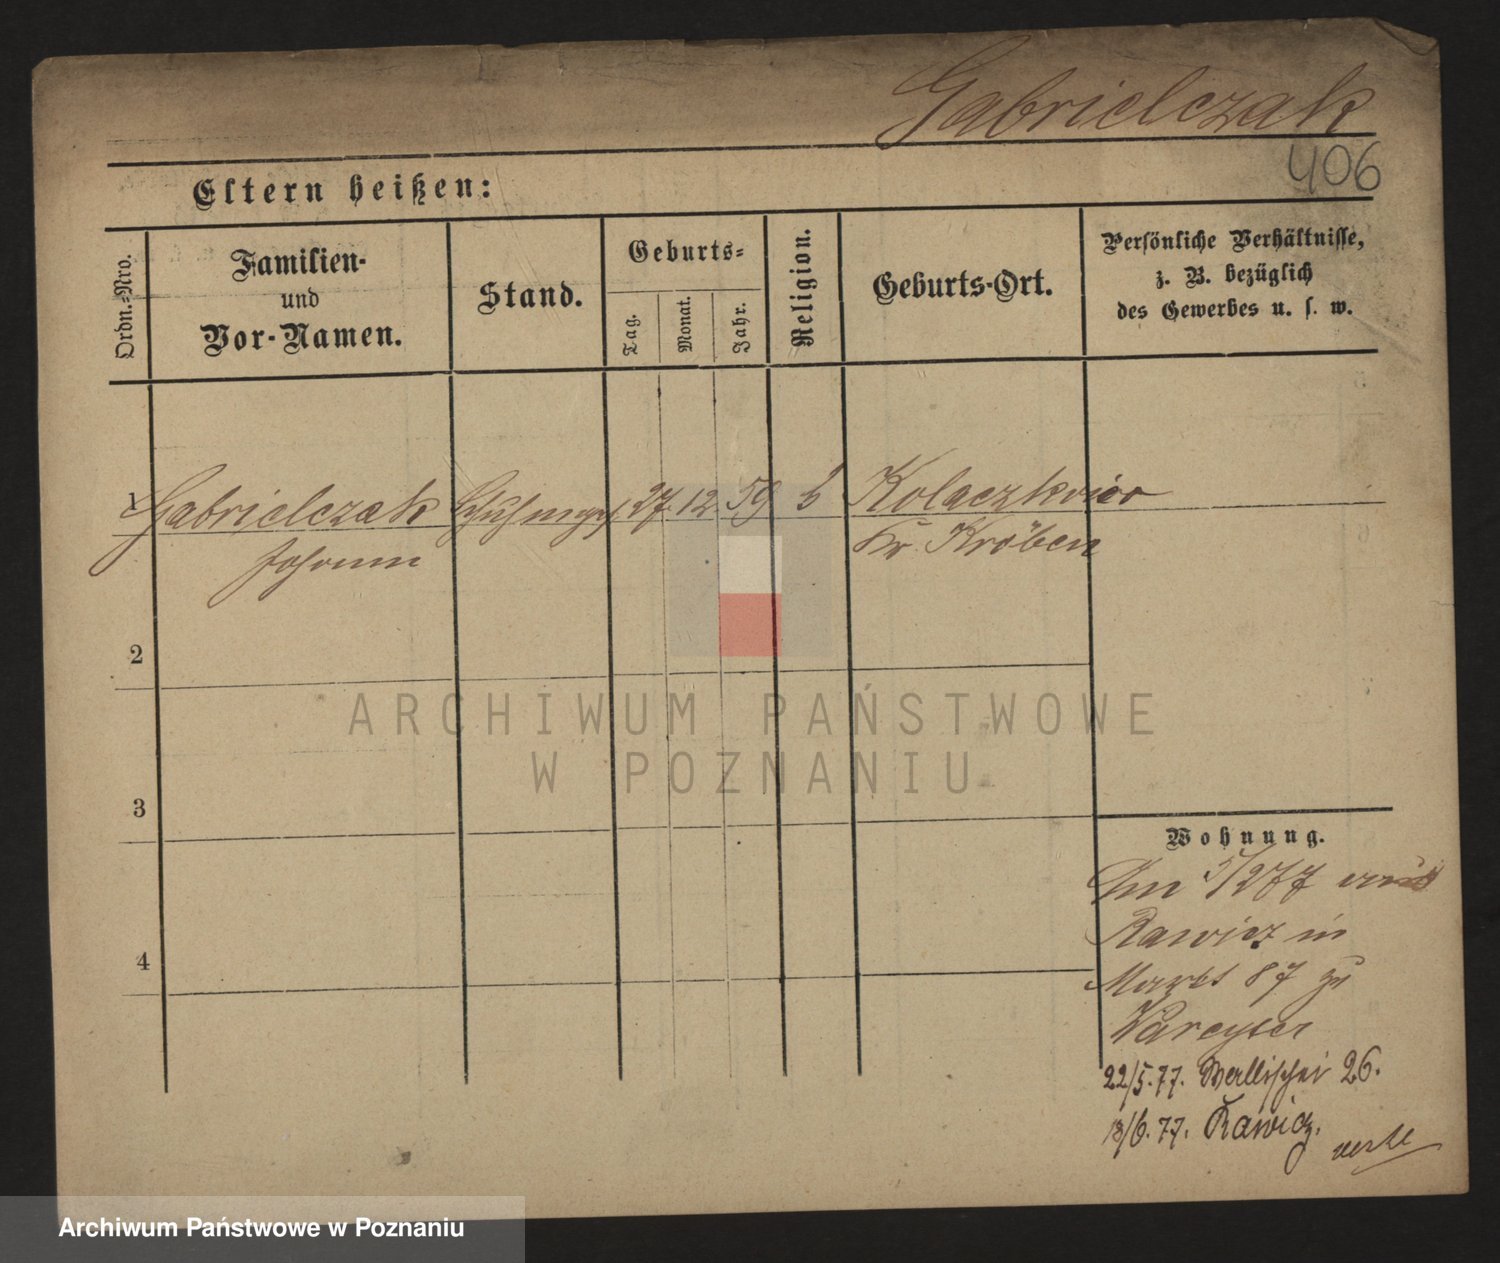 Gabrielczak
406
Eltern heißen:
Ordn.-Nro.
Familien-
und
Vor-Namen.
Stand.
Geburts-
Tag.
Monat.
Jahr.
Religion.
Geburts-Ort.
Persönliche Verhältnisse,
z. B. bezüglich
des Gewerbes u. s. w.
1 Gabrielczak 27 12 59 Kolaczkwice
Johann Kr. Kröben
2
3
4
Wohnung.
Am 5/2 77
Rawicz in
Markt 87 zu
22/5. 77. Wallischei 26.
18/6. 77. Rawicz.
ARCHIWUM PAŃSTWOWE
W POZNANIU
Archiwum Państwowe w Poznaniu